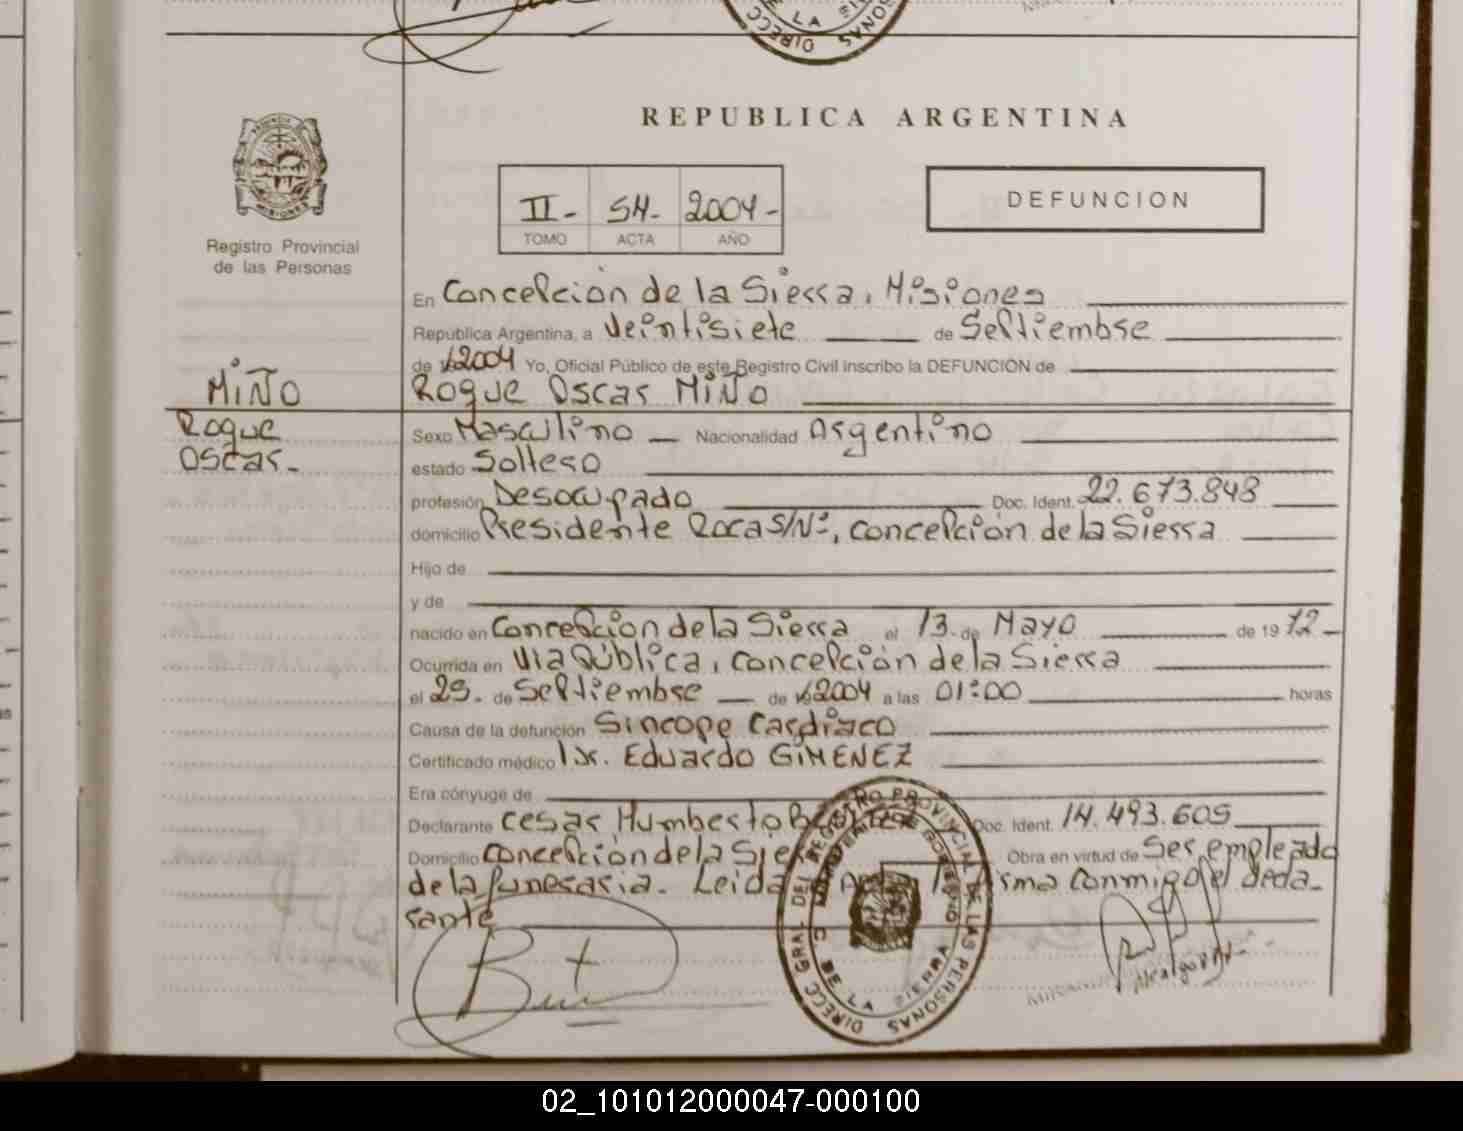 REPUBLICA ARGENTINA
II- 54- 2004-
TOMO ACTA AÑO
DEFUNCION
Registro Provincial
de las Personas
En Concepción de la Sierra, Misiones
Republica Argentina, a Veintisiete de Septiembre
de 2004 Yo, Oficial Público de este Registro Civil inscribo la DEFUNCION de
MIÑO
Roque Oscar MIÑO
Roque
Oscar-
Sexo Masculino Nacionalidad Argentino
estado Soltero
profesión Desocupado Doc. Ident. 22.673.848
domicilio Presidente Roca S/Nº, Concepción de la Sierra
Hijo de
y de
nacido en Concepcion de la Sierra el 13. de Mayo de 1972-
Ocurrida en Via Pública, Concepción de la Sierra
el 25. de Septiembre de 2004 a las 01:00 horas
Causa de la defunción Sincope Cardiaco
Certificado médico Dr. Eduardo GIMENEZ
Era cónyuge de
Declarante Cesar Humberto Doc. Ident. 14.493.605
Domicilio Concepción de la Obra en virtud de Ser empleado
de la funeraria. Leida conmigo el decla-
rante
DIRECC. GRAL. DEL REGISTRO PROVINCIAL DE LAS PERSONAS
DE LA SIERRA
02_101012000047-000100